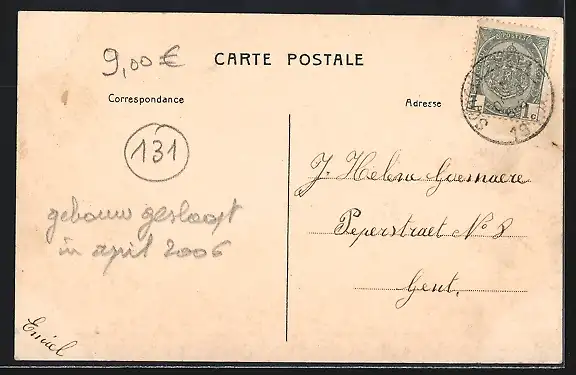 9,00 €
CARTE POSTALE
Correspondance
Adresse
131
J. Hélène Goemaere
Peperstraet No 8
Gent.
gebouw gesloopt
in april 2006
Emiel